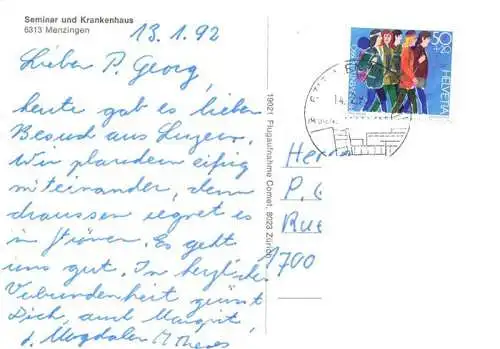 Seminar und Krankenhaus
6313 Menzingen
13.1.92
Lieber P. Georg,
heute gab es lieben
Besuch aus Luzern,
Wir plaudern eifrig
miteinander, denn
draussen regnet es
in Strömen. Es geht
uns gut. In herzlicher
Verbundenheit grüsst
Dich, auch Margrit,
d. Magdalen M. Theres
19021 Flugaufnahme Comet, 8023 Zürich
50+20
HELVETIA
Herrn
P. G
Rue
1700